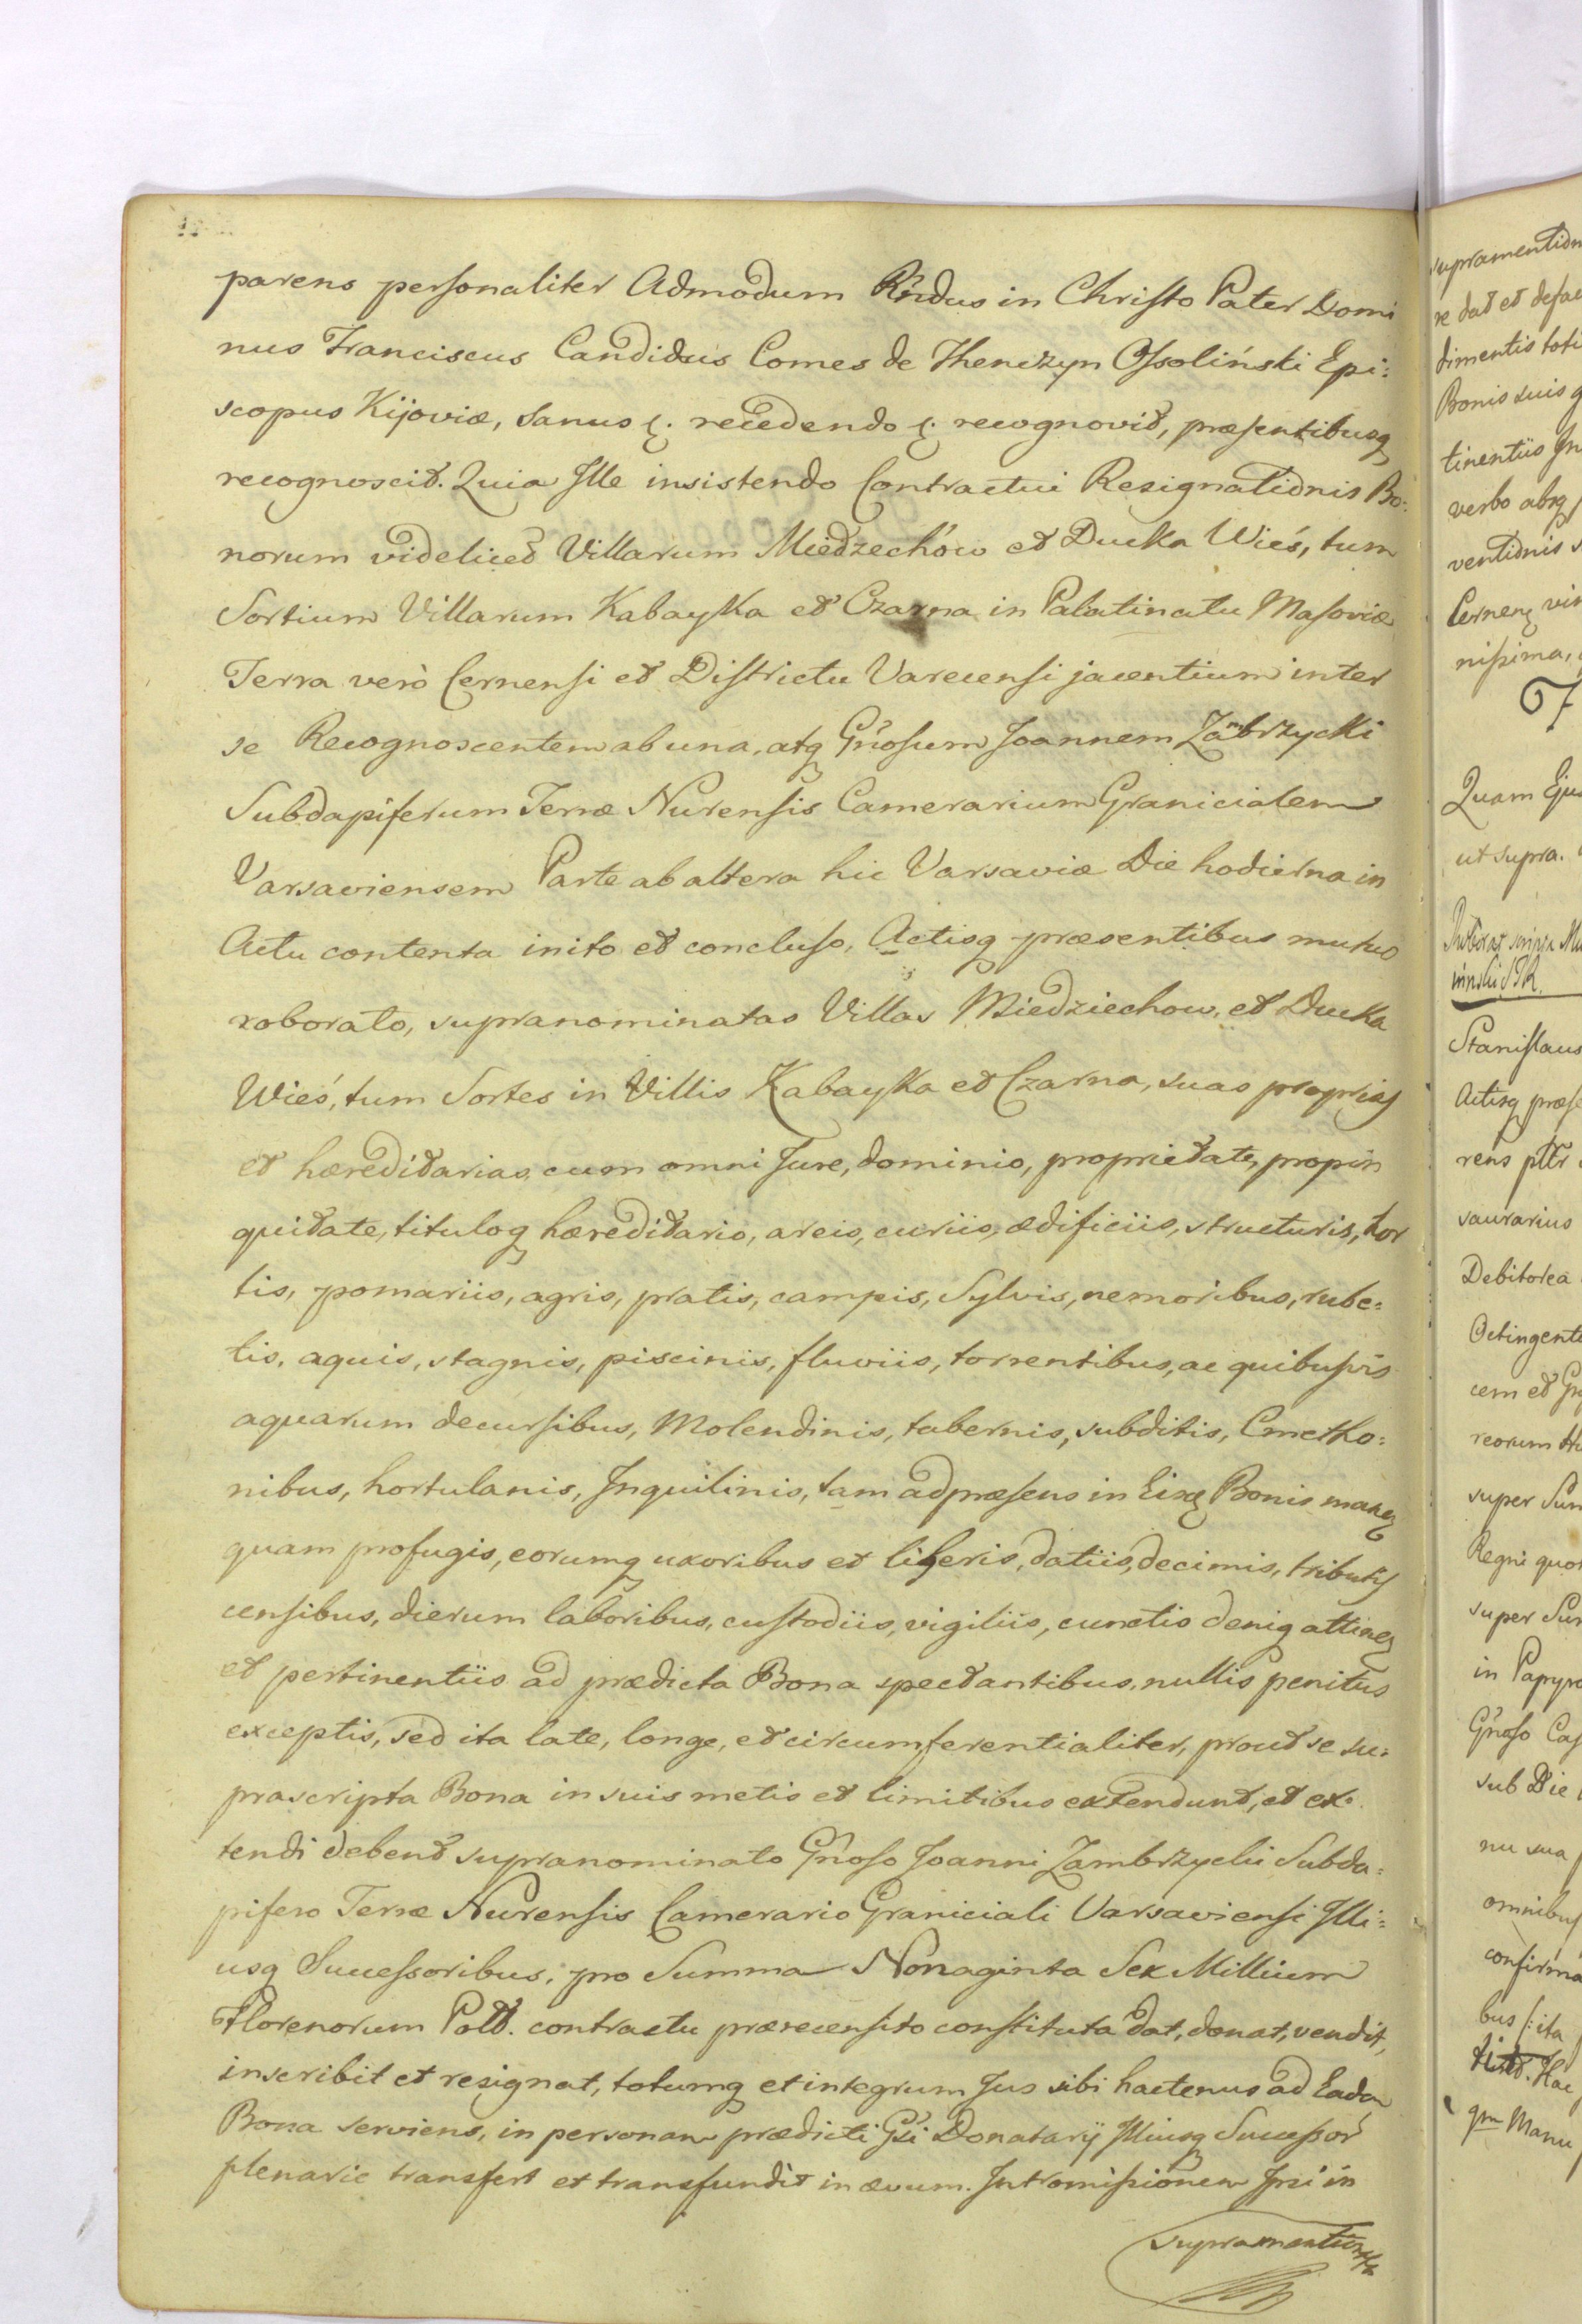 parens personaliter Admodum Rńdus in Christo Pater Domi
nus Franciscus Candidus Comes de Thenczyn Ossoliński Epi:
scopus Kijoviæ, Sanus ꝛ. recedendo ꝛ. recognovit, præsentibusq
recognoscit. Quia Ille insistendo Contractui Resignationis Bo:
norum videlicet Villarum Miedzechów et Ducka Wieś, tum
Sortium Villarum Kabayka et Czarna in Palatinatu Masoviæ
Terra verò Cernensi et Districtu Varecensi jacentium inter
se Recognoscentem ab una, atq Gńosum Joannem Zambrzycki
Subdapiferum Terræ Nurensis Camerarium Granicialem
Varsaviensem Parte ab altera hic Varsaviæ Die hodierna in
Actu contenta inito et concluso, Actisq præsentibus mutuo
roborato, supranominatas Villas Miedziechow, et Ducka
Wieś, tum Sortes in Villis Kabayka et Czarna, suas proprias
et hæreditarias, cum omni Jure, dominio, proprietate, propin
quitate, tituloq hæreditario, areis, curiis, ædificiis, structuris, hor
tis, pomariis, agris, pratis, campis, Sylvis, nemoribus, rube:
tis, aquis, stagnis, piscinis, fluviis, torrentibus, ac quibusvis
aquarum decursibus, Molendinis, tabernis, subditis, Cmetho:
nibus, hortulanis, Inquilinis, tam ad præsens in Eisq Bonis maneq
quam profugis, eorumq uxoribus et liberis, datiis, decimis, tributis
censibus, dierum laboribus, custodiis, vigiliis, cunctis deniq attineq
et pertinentiis ad prædicta Bona spectantibus, nullis penitus
exceptis, sed ita late, longe, et circumferentialiter, prout se su:
prascripta Bona in suis metis et limitibus extendunt, et ex:
tendi debent supranominato Gńoso Joanni Zambrzycki Subda:
pifero Terræ Nurensis Camerario Graniciali Varsaviensi Illi:
usq Successoribus, pro Summa Nonaginta Sex Millium
Florenorum Poll. contractu præcensito constituta dat, donat, vendit,
inscribit et resignat, totumq et integrum Jus sibi hactenus ad Eadem
Bona serviens, in personam prædicti Gśi Donatarij Illiusq Successor
plenarie transfert et transfundit in ævum. Intromissionem Ipsi in
supramentiõta
supramentiõn
re dat et
dimentis toti
Bonis suis
tinentiis
verbo absq
ventiõnis
Cerneq
nissima,
Quam Ejus
ut supra.
Stanislaus
Actisq præse
rens
saurarius
Debitorea
Octingente
cem et
reorum
super Sum
Regni quor
super Sum
in Papyro
Gńoso Cas
sub Die
nu sua
omnibus
confirma
bus ſ: ita
Hac
qm Manu